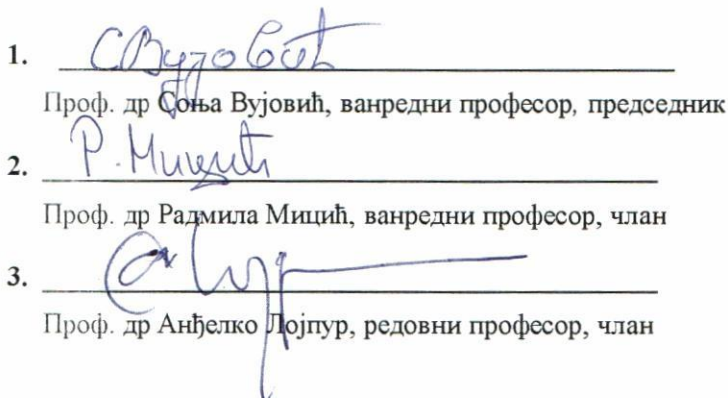 1. СВујовић
Проф. др Соња Вујовић, ванредни професор, председник
2. Р. Мицић
Проф. др Радмила Мицић, ванредни професор, члан
3.
Проф. др Анђелко Лојпур, редовни професор, члан